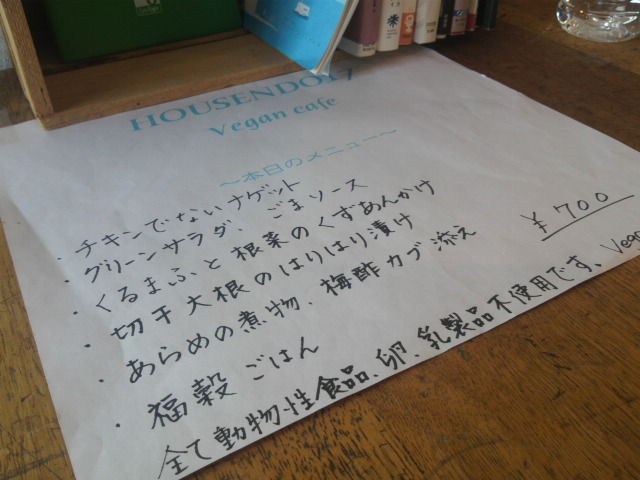 HOUSENDO17
Vegan cafe
〜本日のメニュー〜
・チキンでないナゲット
・グリーンサラダ、ごまソース
・くるまふと根菜のくずあんかけ
・切干大根のはりはり漬け
・あらめの煮物、梅酢カブ添え
・福穀ごはん
¥700
全て動物性食品、卵、乳製品不使用です、Vega